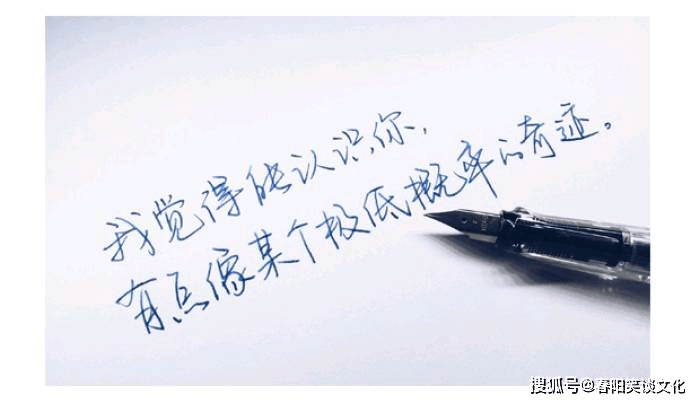 我觉得能认识你,
有点像某个极低概率的奇迹。
搜狐号@春阳笑谈文化